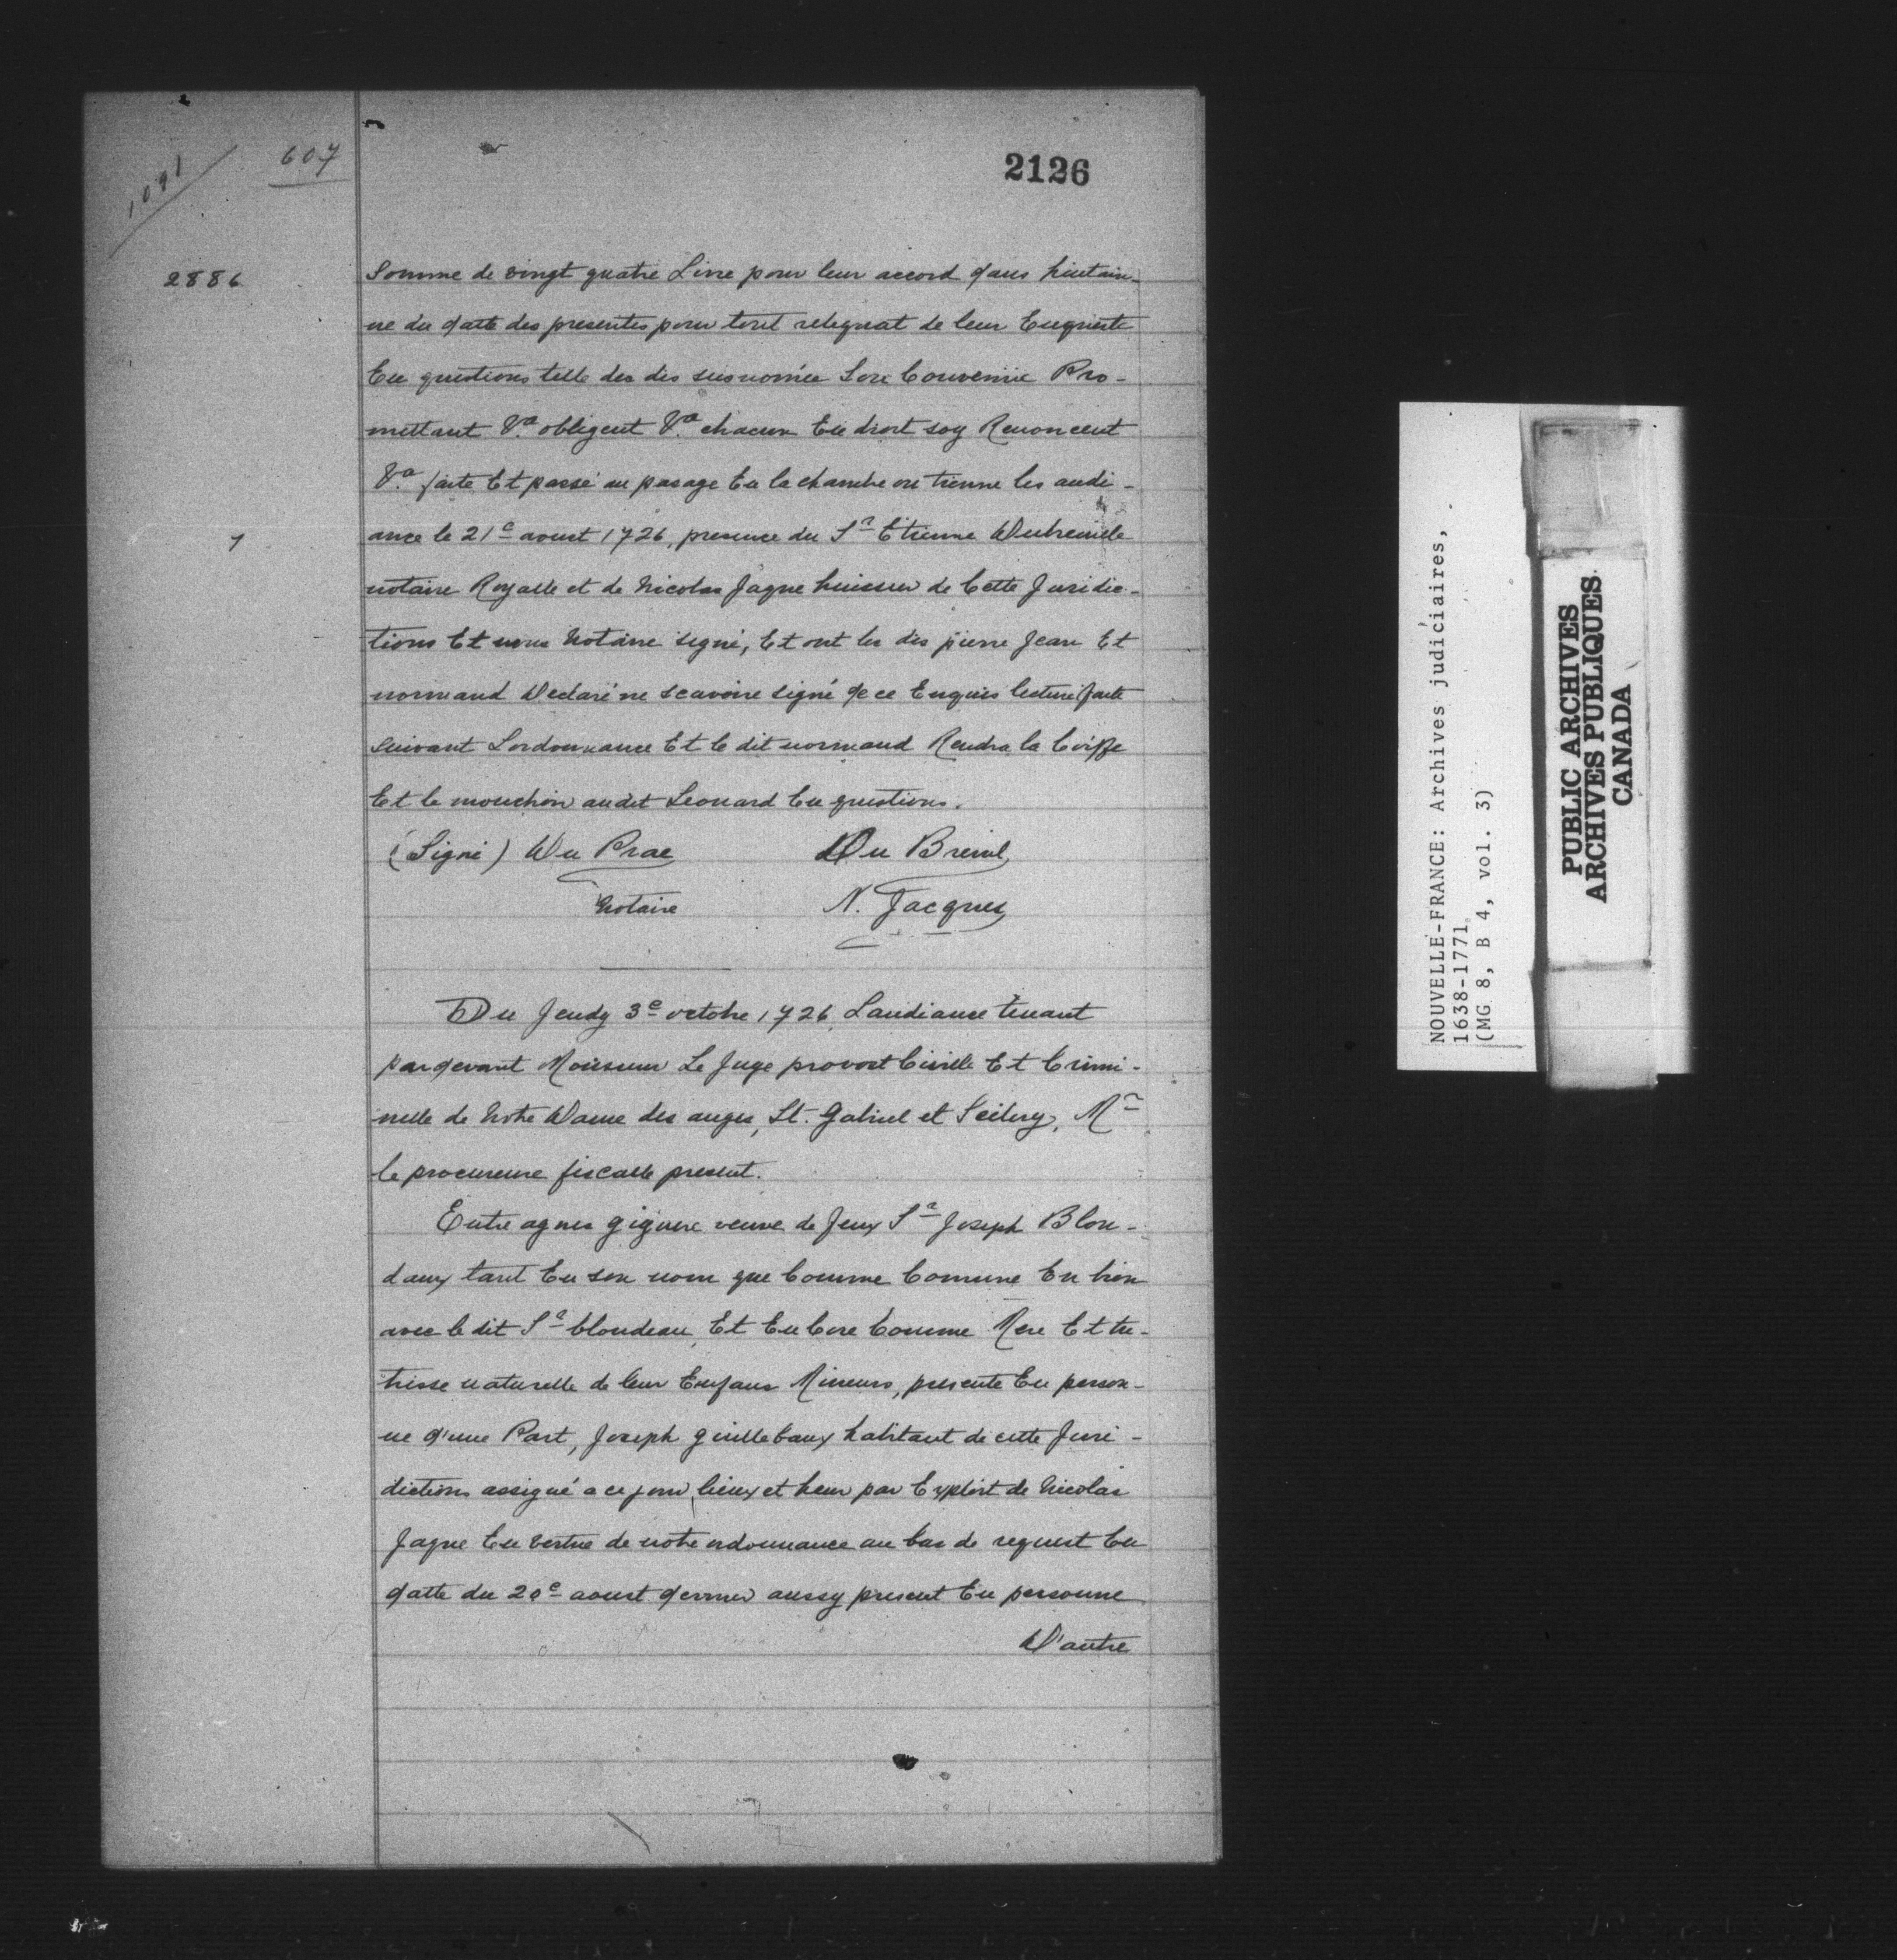 1091
607
2126
2886
Somme de vingt quatre Livre pour leur accord dans huitain-
ne du datte des presentes pour tout reliquat de leur Enqueste
En questions telle des dis susnomée Son Convenüe Pro-
mettant &a. obligent &a. chacun En droit soy Renoncent
&a. faite Et passé au pasage En la chambre ou tienne les audi-
ance le 21e aoust 1726, presence du Sr Etienne Dubreuille
7
notaire Royalle et de Nicolas Jaque huissier de Cette Juridic-
tions Et nous Notaire signé, Et ont les dis pierre Jean Et
normand Declaré ne scavoire signé de ce Enquis lecture faite
suivant Lordonnance Et le dit normand Rendra la Coiffe
Et le mouchoir audit Leonard En questions.
(Signé) Du Prac Du Breuil
Notaire N. Jacques
Du Jeudy 3e octobre 1726, Laudiance tenant
pardevant Moisieur Le Juge provost Civille Et Crimi-
nelle de Notre Dame des anges, St. Gabriel et Scilery, Mr
le procureure fiscalle present.
Entre agnes giguere veuve de feux Sr Joseph Blon-
daux tant En son nom que Comme Comune En bien
avec le dit Sr blondeau, Et EnCore Comme Mere Et tu-
trisse naturelle de leur Enfans Mineurs, presente En person-
ne d'une Part, Joseph guillebaux habitant de cette Juri-
dictions assigné a ce jour, lieux et heur par Exploit de Nicolas
Jaque En vertue de notre ordonnance au bas de request En
datte du 20e aoust dernier aussy present En personne
D'autre
NOUVELLE-FRANCE: Archives judiciaires,
1638-1771
(MG 8, B 4, vol. 3)
PUBLIC ARCHIVES
ARCHIVES PUBLIQUES
CANADA